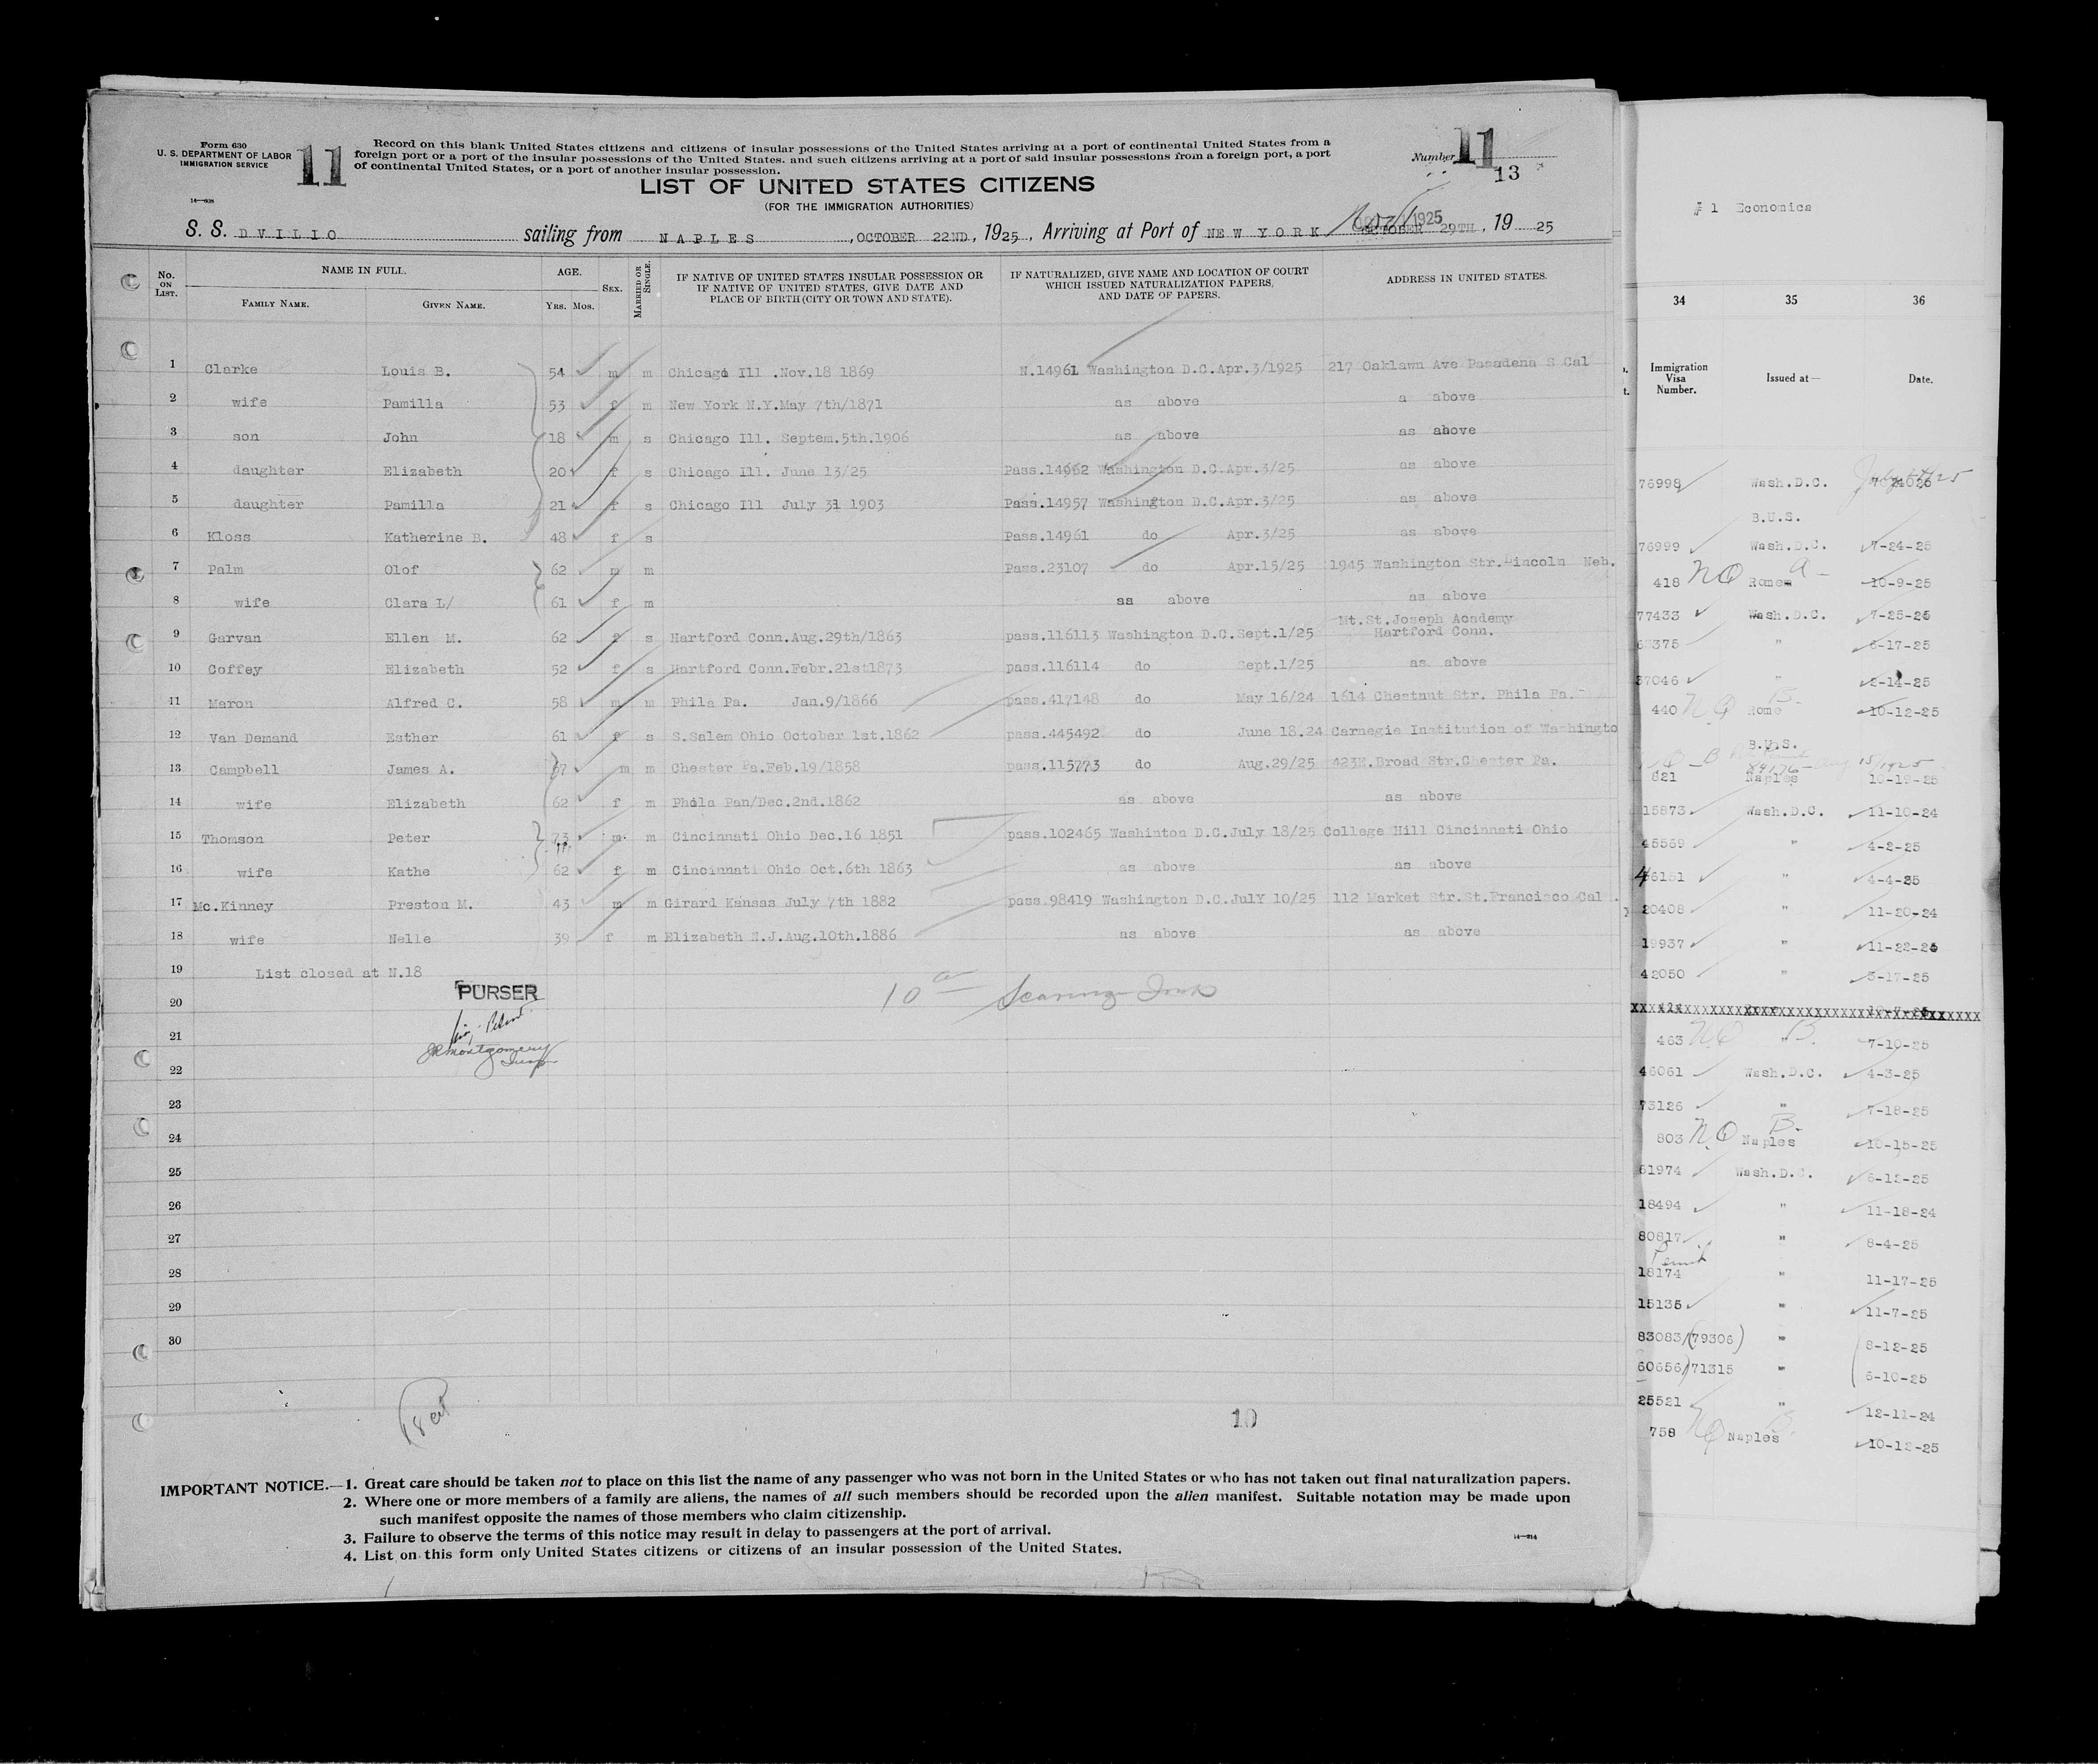 Form 630
U. S. DEPARTMENT OF LABOR
IMMIGRATION SERVICE
11
Record on this blank United States citizens and citizens of insular possessions of the United States arriving at a port of continental United States from a
foreign port or a port of the insular possessions of the United States. and such citizens arriving at a port of said insular possessions from a foreign port, a port
of continental United States, or a port of another insular possession.
Number 11
13
LIST OF UNITED STATES CITIZENS
(FOR THE IMMIGRATION AUTHORITIES)
S. S. DVILIO sailing from NAPLES, OCTOBER 22ND, 1925, Arriving at Port of NEW YORK OCTOBER 29TH, 19 25
No. ON LIST. NAME IN FULL. AGE. SEX. MARRIED OR SINGLE. IF NATIVE OF UNITED STATES INSULAR POSSESSION OR IF NATIVE OF UNITED STATES, GIVE DATE AND PLACE OF BIRTH (CITY OR TOWN AND STATE). IF NATURALIZED, GIVE NAME AND LOCATION OF COURT WHICH ISSUED NATURALIZATION PAPERS, AND DATE OF PAPERS. ADDRESS IN UNITED STATES.
FAMILY NAME. GIVEN NAME. YRS. MOS.
1 Clarke Louis B. 54 m m Chicago Ill .Nov.18 1869 N.14961 Washington D.C.Apr.3/1925 217 Oaklawn Ave Pasadena S Cal
2 wife Pamilla 53 f m New York N.Y.May 7th/1871 as above a above
3 son John 18 m s Chicago Ill. Septem.5th.1906 as above as above
4 daughter Elizabeth 20 f s Chicago Ill. June 13/25 Pass.14962 Washington D.C.Apr.3/25 as above
5 daughter Pamilla 21 f s Chicago Ill July 31 1903 Pass.14957 Washington D.C.Apr.3/25 as above
6 Kloss Katherine B. 48 f s Pass.14961 do Apr.3/25 as above
7 Palm Olof 62 m m Pass.23107 do Apr.15/25 1945 Washington Str.Lincoln Neb.
8 wife Clara L/ 61 f m as above as above
9 Garvan Ellen M. 62 f s Hartford Conn.Aug.29th/1863 pass.116113 Washington D.C.Sept.1/25 Mt.St.Joseph Academy Hartford Conn.
10 Coffey Elizabeth 52 f s Hartford Conn.Febr.21st1873 pass.116114 do Sept.1/25 as above
11 Maron Alfred C. 58 m m Phila Pa. Jan.9/1866 pass.417148 do May 16/24 1614 Chestnut Str. Phila Pa.
12 Van Demand Esther 61 f s S.Salem Ohio October 1st.1862 pass.445492 do June 18.24 Carnegie Institution of Washingto
13 Campbell James A. 67 m m Chester Pa.Feb.19/1858 pass.115773 do Aug.29/25 423E.Broad Str.Chester Pa.
14 wife Elizabeth 62 f m Phila Pan/Dec.2nd.1862 as above as above
15 Thomson Peter 73 m m Cincinnati Ohio Dec.16 1851 pass.102465 Washinton D.C.July 18/25 College Hill Cincinnati Ohio
16 wife Kathe 62 f m Cincinnati Ohio Oct.6th 1863 as above as above
17 Mc.Kinney Preston M. 43 m m Girard Kansas July 7th 1882 pass.98419 Washington D.C.JulY 10/25 112 Market Str.St.Francisco Cal.
18 wife Nelle 39 f m Elizabeth N.J.Aug.10th.1886 as above as above
19 List closed at N.18
20 PURSER 10
21
JRMontgomery
22
23
24
25
26
27
28
29
30
10
IMPORTANT NOTICE.—1. Great care should be taken not to place on this list the name of any passenger who was not born in the United States or who has not taken out final naturalization papers.
2. Where one or more members of a family are aliens, the names of all such members should be recorded upon the alien manifest. Suitable notation may be made upon
such manifest opposite the names of those members who claim citizenship.
3. Failure to observe the terms of this notice may result in delay to passengers at the port of arrival.
4. List on this form only United States citizens or citizens of an insular possession of the United States.
# 1 Economica
34 35 36
Immigration Visa Number. Issued at— Date.
76998 Wash.D.C.
B.U.S.
76999 Wash.D.C. 7-24-25
418 NQ Rome 10-9-25
77433 Wash.D.C. 7-25-25
375 " 6-17-25
37046 " 2-14-25
440 NQ Rome B 10-12-25
B.U.S.
821 Naples 10-19-25
15873 Wash.D.C. 11-10-24
45559 " 4-2-25
46151 " 4-4-25
20408 " 11-20-24
19937 " 11-22-24
42050 " 3-17-25
463 NQ " B. 7-10-25
46061 Wash.D.C. 4-3-25
73126 " 7-18-25
803 NQ Naples B. 10-15-25
61974 Wash.D.C. 6-12-25
18494 " 11-18-24
80817 " 8-4-25
Permit
18174 " 11-17-25
15135 " 11-7-25
83083/(79306) " 8-12-25
60656/71315 " 6-10-25
25521 " 12-11-24
758 NQ Naples B. 10-12-25